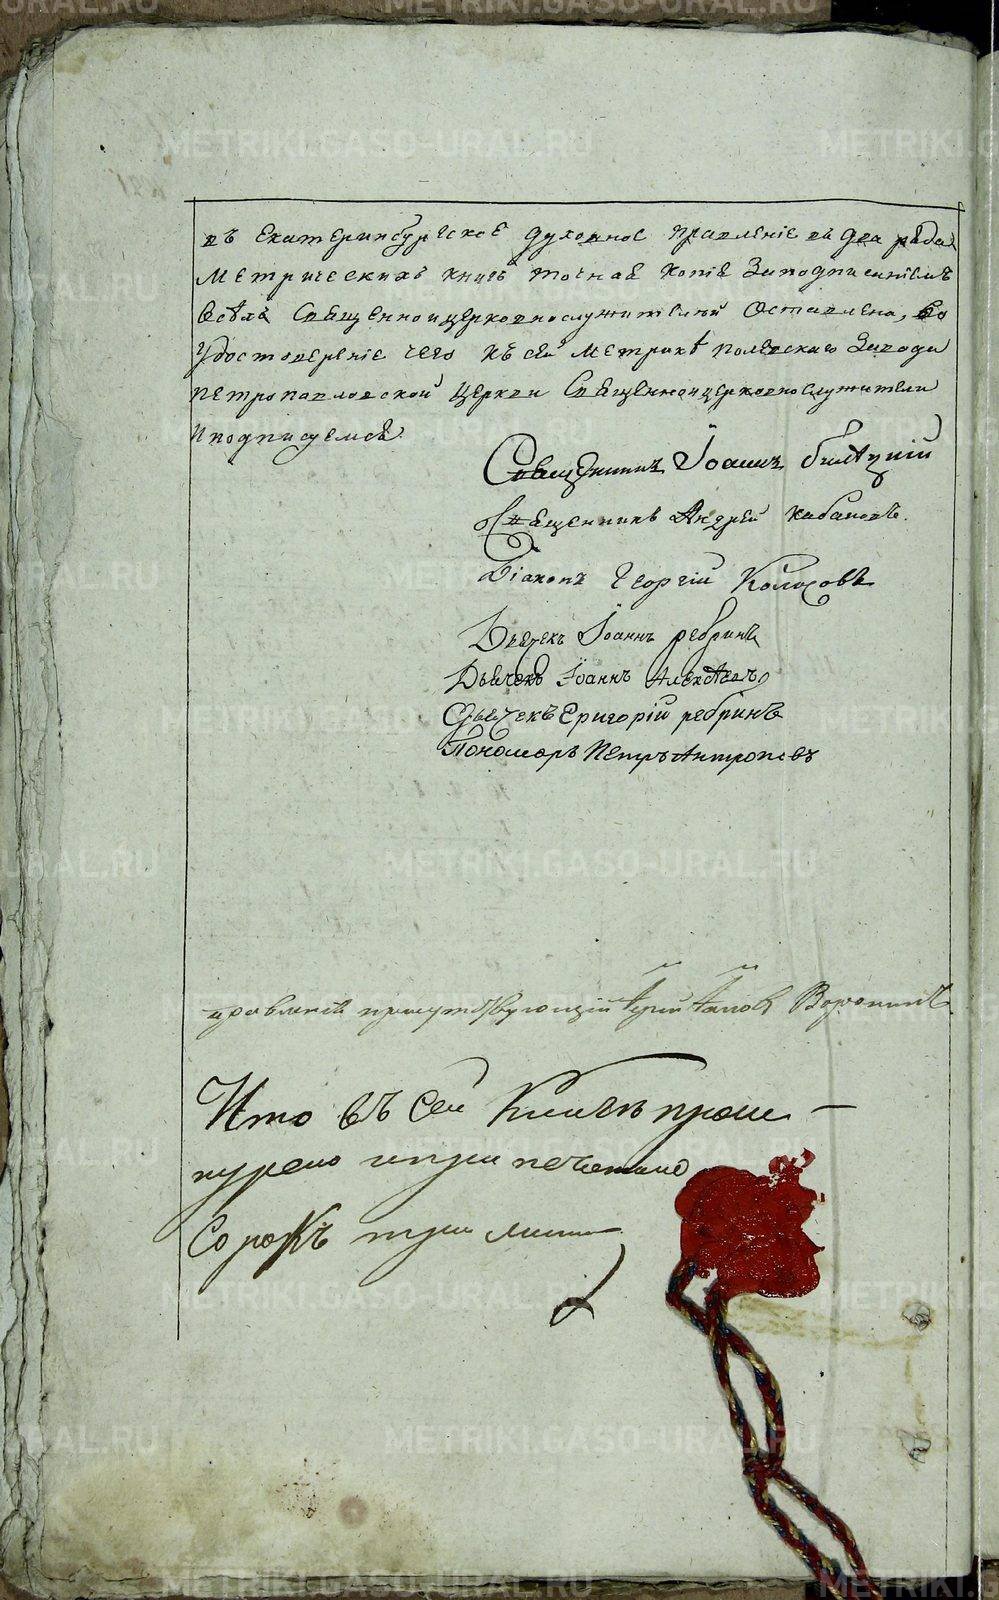 въ Екатеринбургское духовное правленіе въ два ряда
Метрическихъ книгъ точная копія за подписаніемъ
всѣхъ Священноицерковнослужителей оставлена, во
удостовереніе чего къ сей метрикѣ полевскаго завода
петропавловской церкви Священноицерковнослужители
и подписуемся.
Священникъ Іоаннъ
Священникъ Андрей Кабаковъ.
Діаконъ Георгій Колосовъ
Дьячекъ Іоаннъ ребринъ
Дьячекъ Іоаннъ Алексѣевъ
Дьячекъ Григорій ребринъ
Пономарь Петръ Антроповъ
правленія присутствующій Іерей
Что въ сей Книгѣ прош-
нурено и припечатано
Сорокъ три листа
METRIKI.GASO-URAL.RU